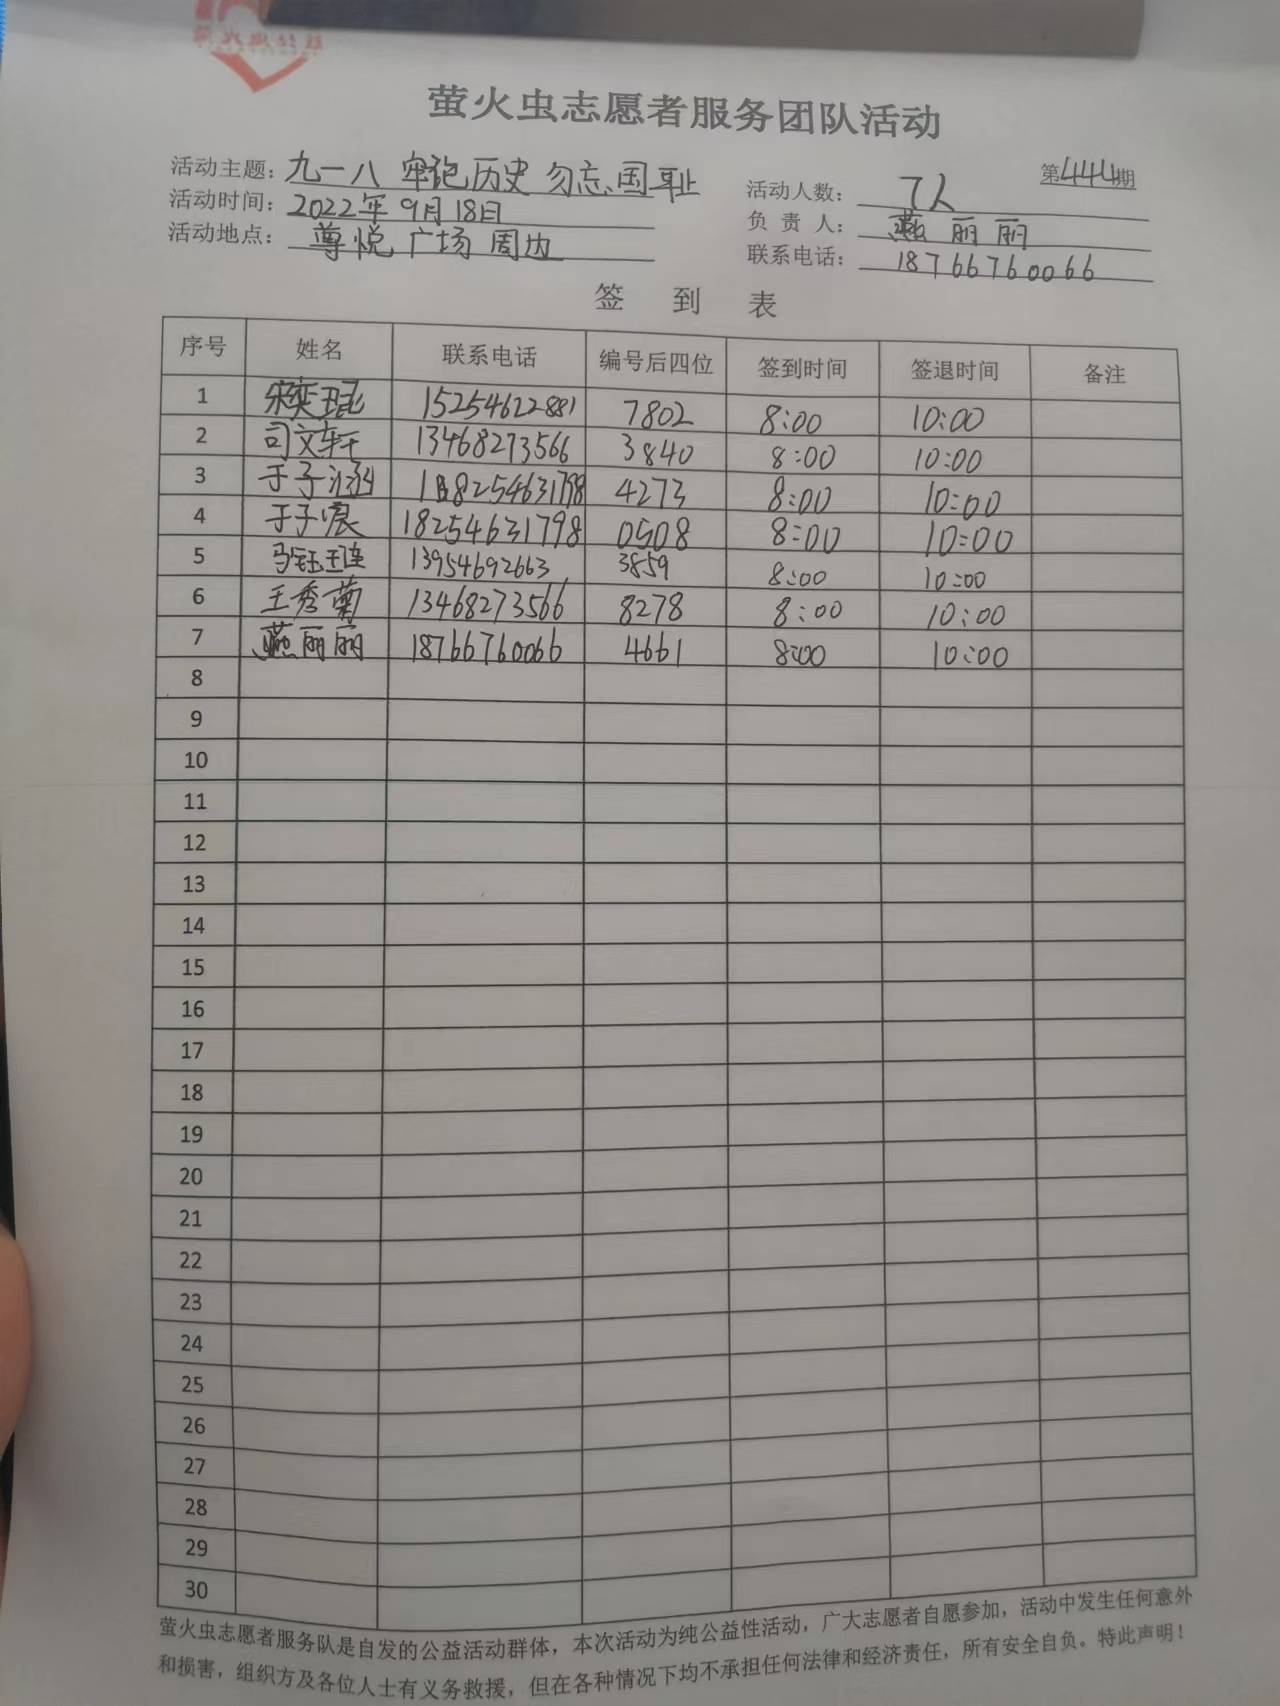 萤火虫志愿者服务团队活动
第444期
活动主题：九一八 牢记历史 勿忘国耻
活动时间：2022年9月18日
活动地点：尊悦广场周边
活动人数：7人
负责人：燕丽丽
联系电话：18766760066
签到表
序号 姓名 联系电话 编号后四位 签到时间 签退时间 备注
1 宋奕琨 15254622881 7802 8:00 10:00
2 司文轩 13468273566 3840 8:00 10:00
3 于子涵 18254631798 4273 8:00 10:00
4 于子宸 18254631798 0508 8:00 10:00
5 马钰琏 13954692663 3859 8:00 10:00
6 王秀菊 13468273566 8278 8:00 10:00
7 燕丽丽 18766760066 4661 8:00 10:00
8
9
10
11
12
13
14
15
16
17
18
19
20
21
22
23
24
25
26
27
28
29
30
萤火虫志愿者服务队是自发的公益活动群体，本次活动为纯公益性活动，广大志愿者自愿参加，活动中发生任何意外
和损害，组织方及各位人士有义务救援，但在各种情况下均不承担任何法律和经济责任，所有安全自负。特此声明！